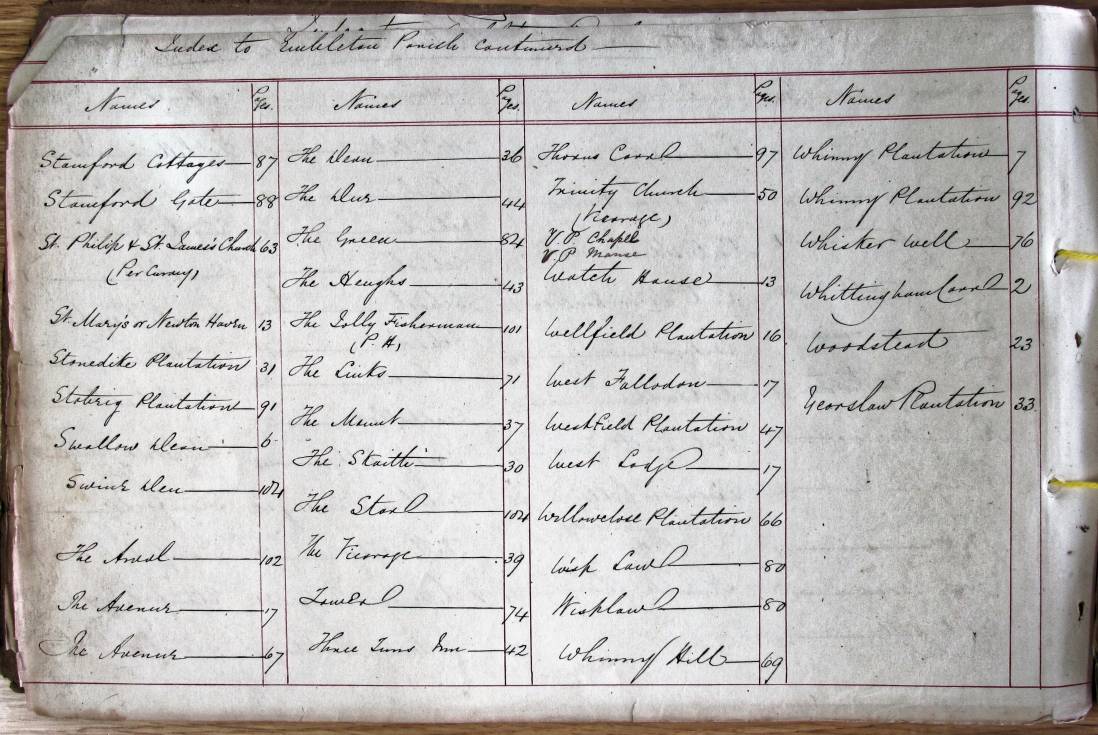 Index to Embleton Parish continued
Names Pages. Names Pages. Names Pages. Names Pages.
Stamford Cottages 87
Stamford Gate 88
St. Philip & St. James's Church 63
(Per Curacy)
St. Mary's or Newton Haven 13
Stonedike Plantation 31
Stobrig Plantation 91
Swallow Dean 6
Swine Den 104
The 102
The Avenue 17
The Avenue 67
The Dean 36
The Dur 44
The Green 84
The Heughs 43
The Jolly Fisherman 101
(P. H)
The Links 71
The Mount 37
The Staith 30
The 104
The Vicarage 39
74
Three Tuns Inn 42
Thorns Carr 97
Trinity Church 50
(Vicarage)
U. P. Chapel
U. P. Manse
Watch House 13
Wellfield Plantation 16
West Fallodon 17
Westfield Plantation 47
West Lodge 17
Willowclose Plantation 66
Wisp Law 80
Wisplaw 80
Whinny Hill 69
Whinny Plantation 7
Whinny Plantation 92
Whisker Well 76
Whittingham Carr 2
Woodstead 23
Yearslaw Plantation 33